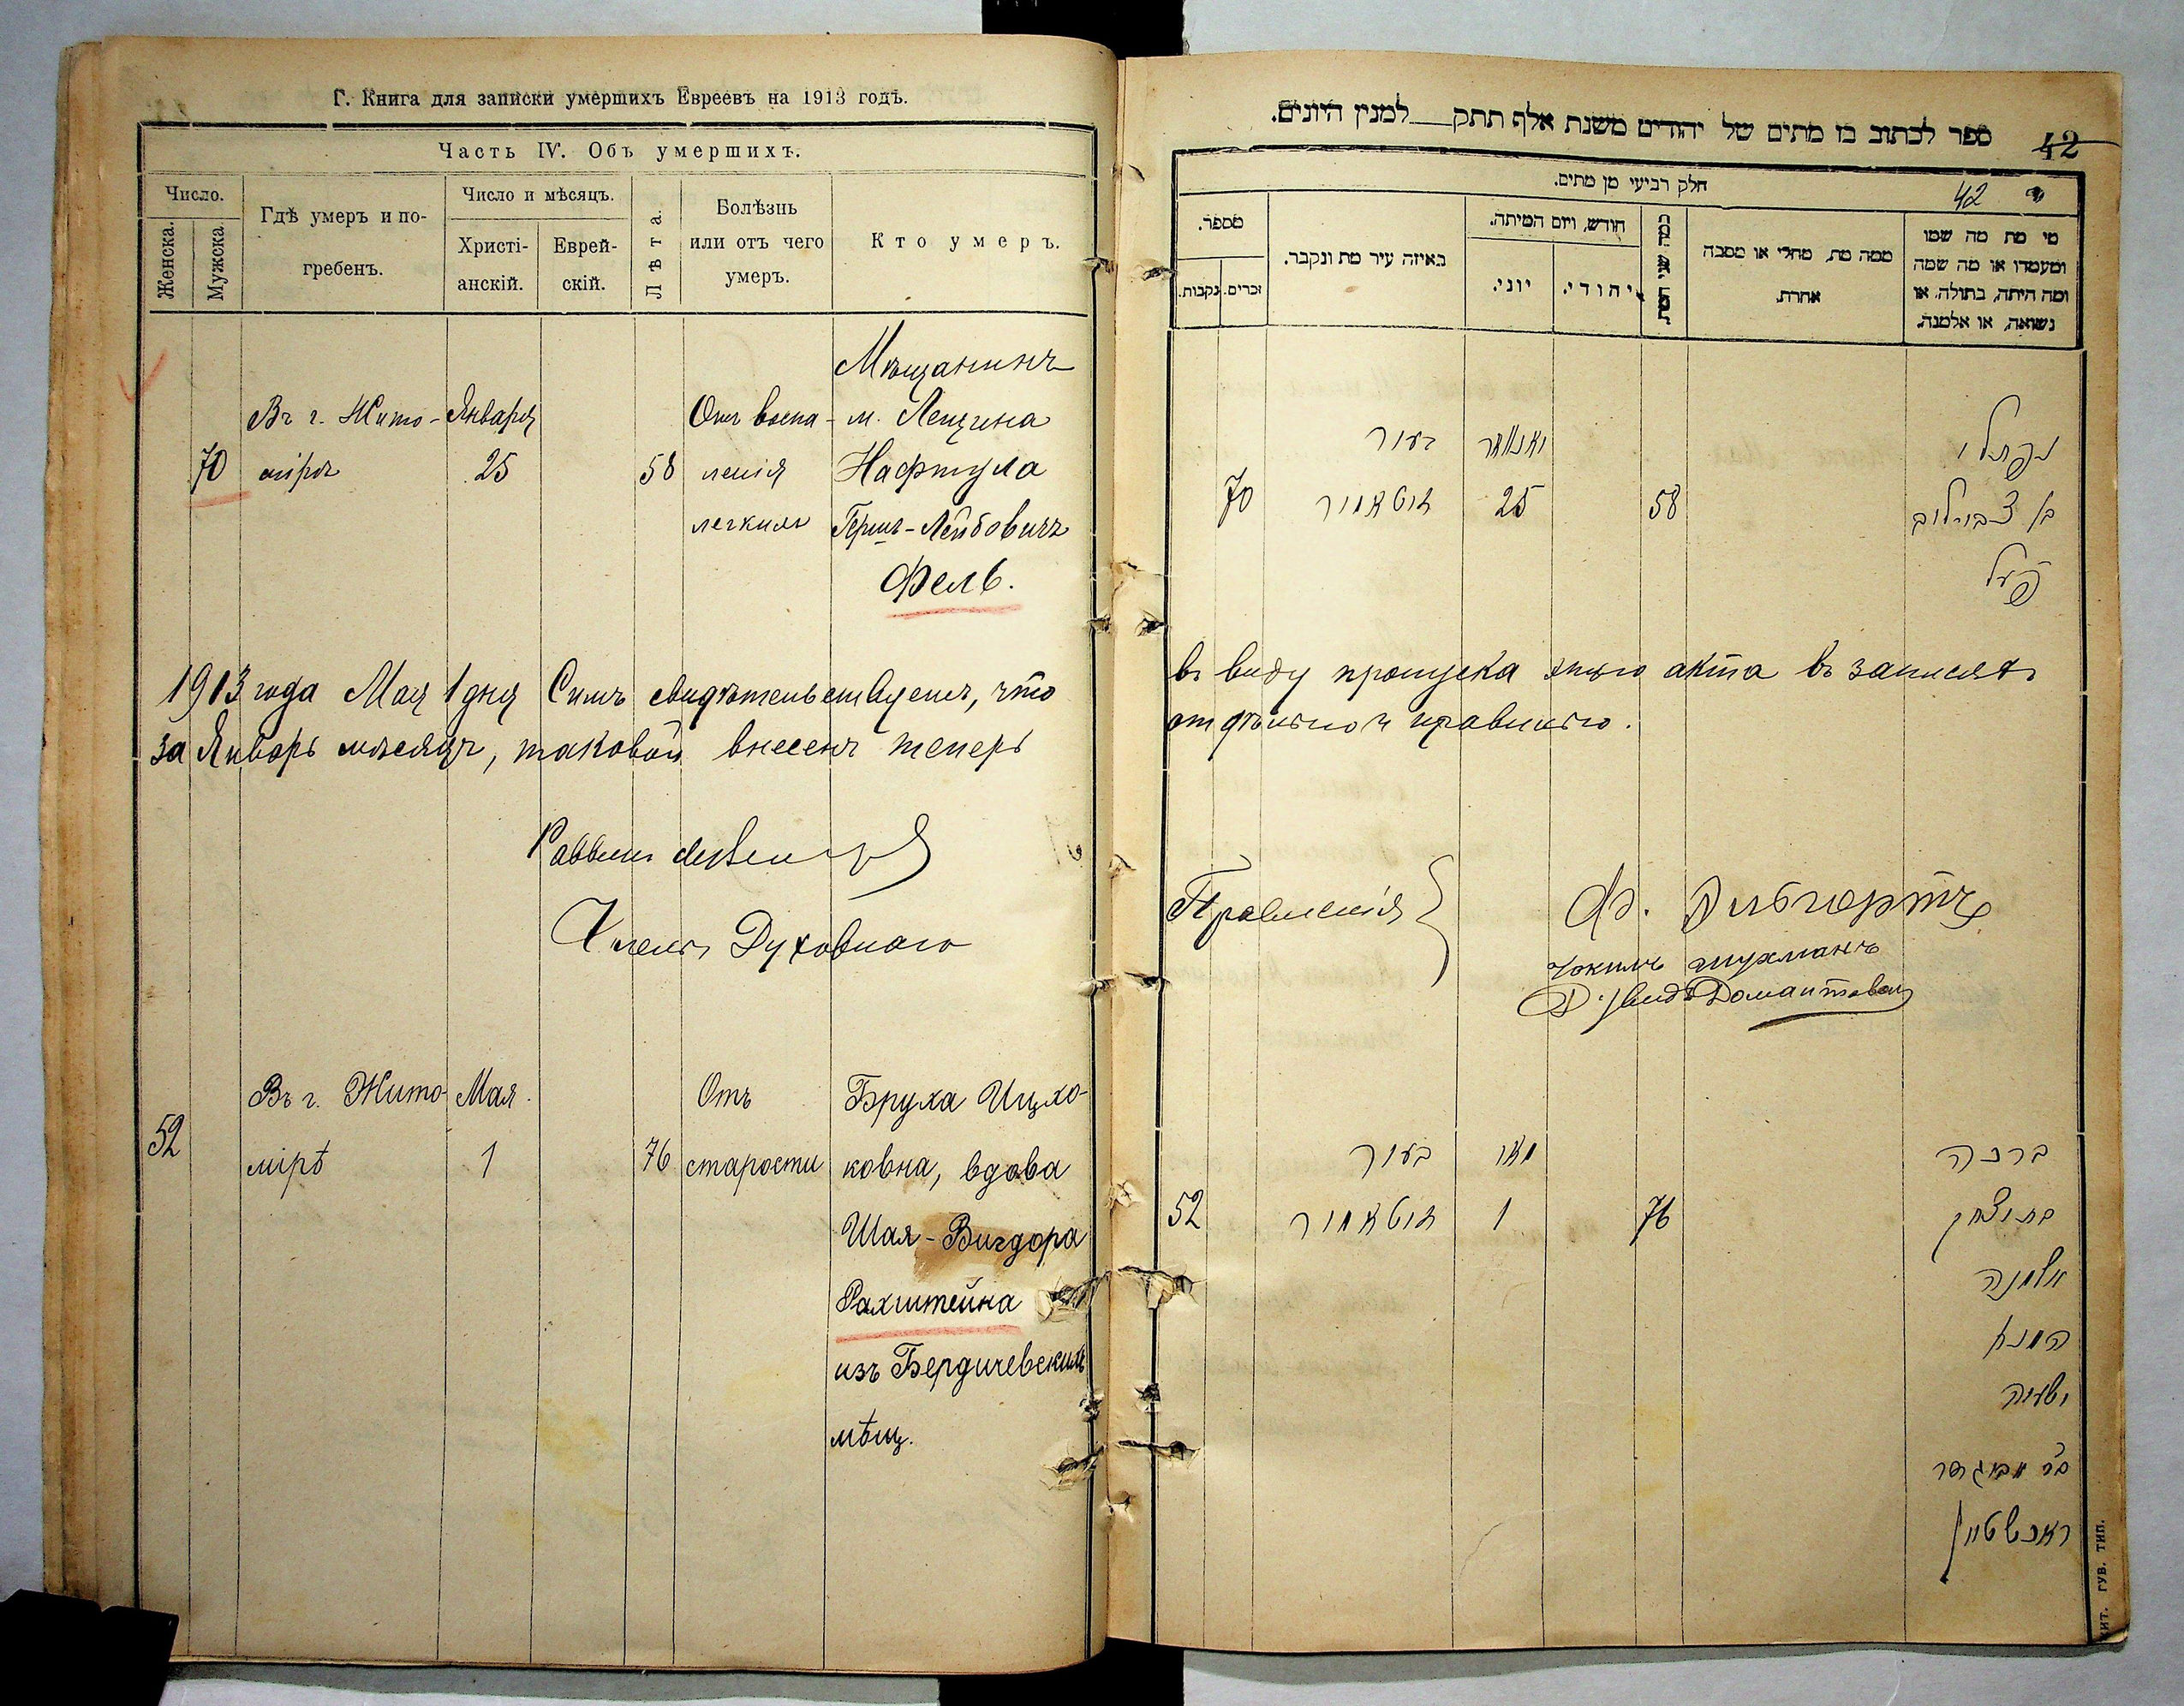 Г. Книга для записки умершихъ Евреевъ на 1913 годъ.
Часть IV. Объ умершихъ.
Число.
Женска.
Мужска.
Гдѣ умеръ и по-
гребенъ.
Число и мѣсяцъ.
Христі-
анскій.
Еврей-
скій.
Лѣта.
Болѣзнь
или отъ чего
умеръ.
Кто умеръ.
70
Въ г. Жито-
мірѣ
Января
25
58
Отъ воспа-
ленія
легкихъ
Мѣщанинъ
м. Лещина
Нафтула
Герш-Лейбовичъ
Фель.
1913 года Мая 1 дня Симъ свидѣтельствуемъ, что
за Январь мѣсяцъ, таковой внесенъ теперь
Раввинъ
Членъ Духовнаго
52
Въ г. Жито-
мірѣ
Мая
1
76
Отъ
старости
Бруха Ицко-
ковна, вдова
Шая-Вигдора
Рахштейна
изъ Бердичевскихъ
мѣщ.
ספר לכתוב בו מתים של יהודים משנת אלף תתק למנין היונים.
42
חלק רביעי מן מתים.
42
מספר.
נקבות.
זכרים.
באיזה עיר מת ונקבר.
חודש, ויום המיתה.
יוני.
יהודי.
ממה מת, מחלי או מסבה
אחרת.
מי מת מה שמו
ומעמדו או מה שמה
ומה היתה, בתולה, או
נשואה, או אלמנה.
70
בעיר
זיטאמיר
יאנואר
25
58
נפתלי
בן צבי ליב
פעל
въ виду пропуска этого акта въ записяхъ
Правленія
Ф.
Іокимъ Шухманъ
52
בעיר
זיטאמיר
מאי
1
76
ברכה
בת יצחק
אלמנה
ישעיה
אביגדור
ראכשטיין
ЖИТ. ГУБ. ТИП.